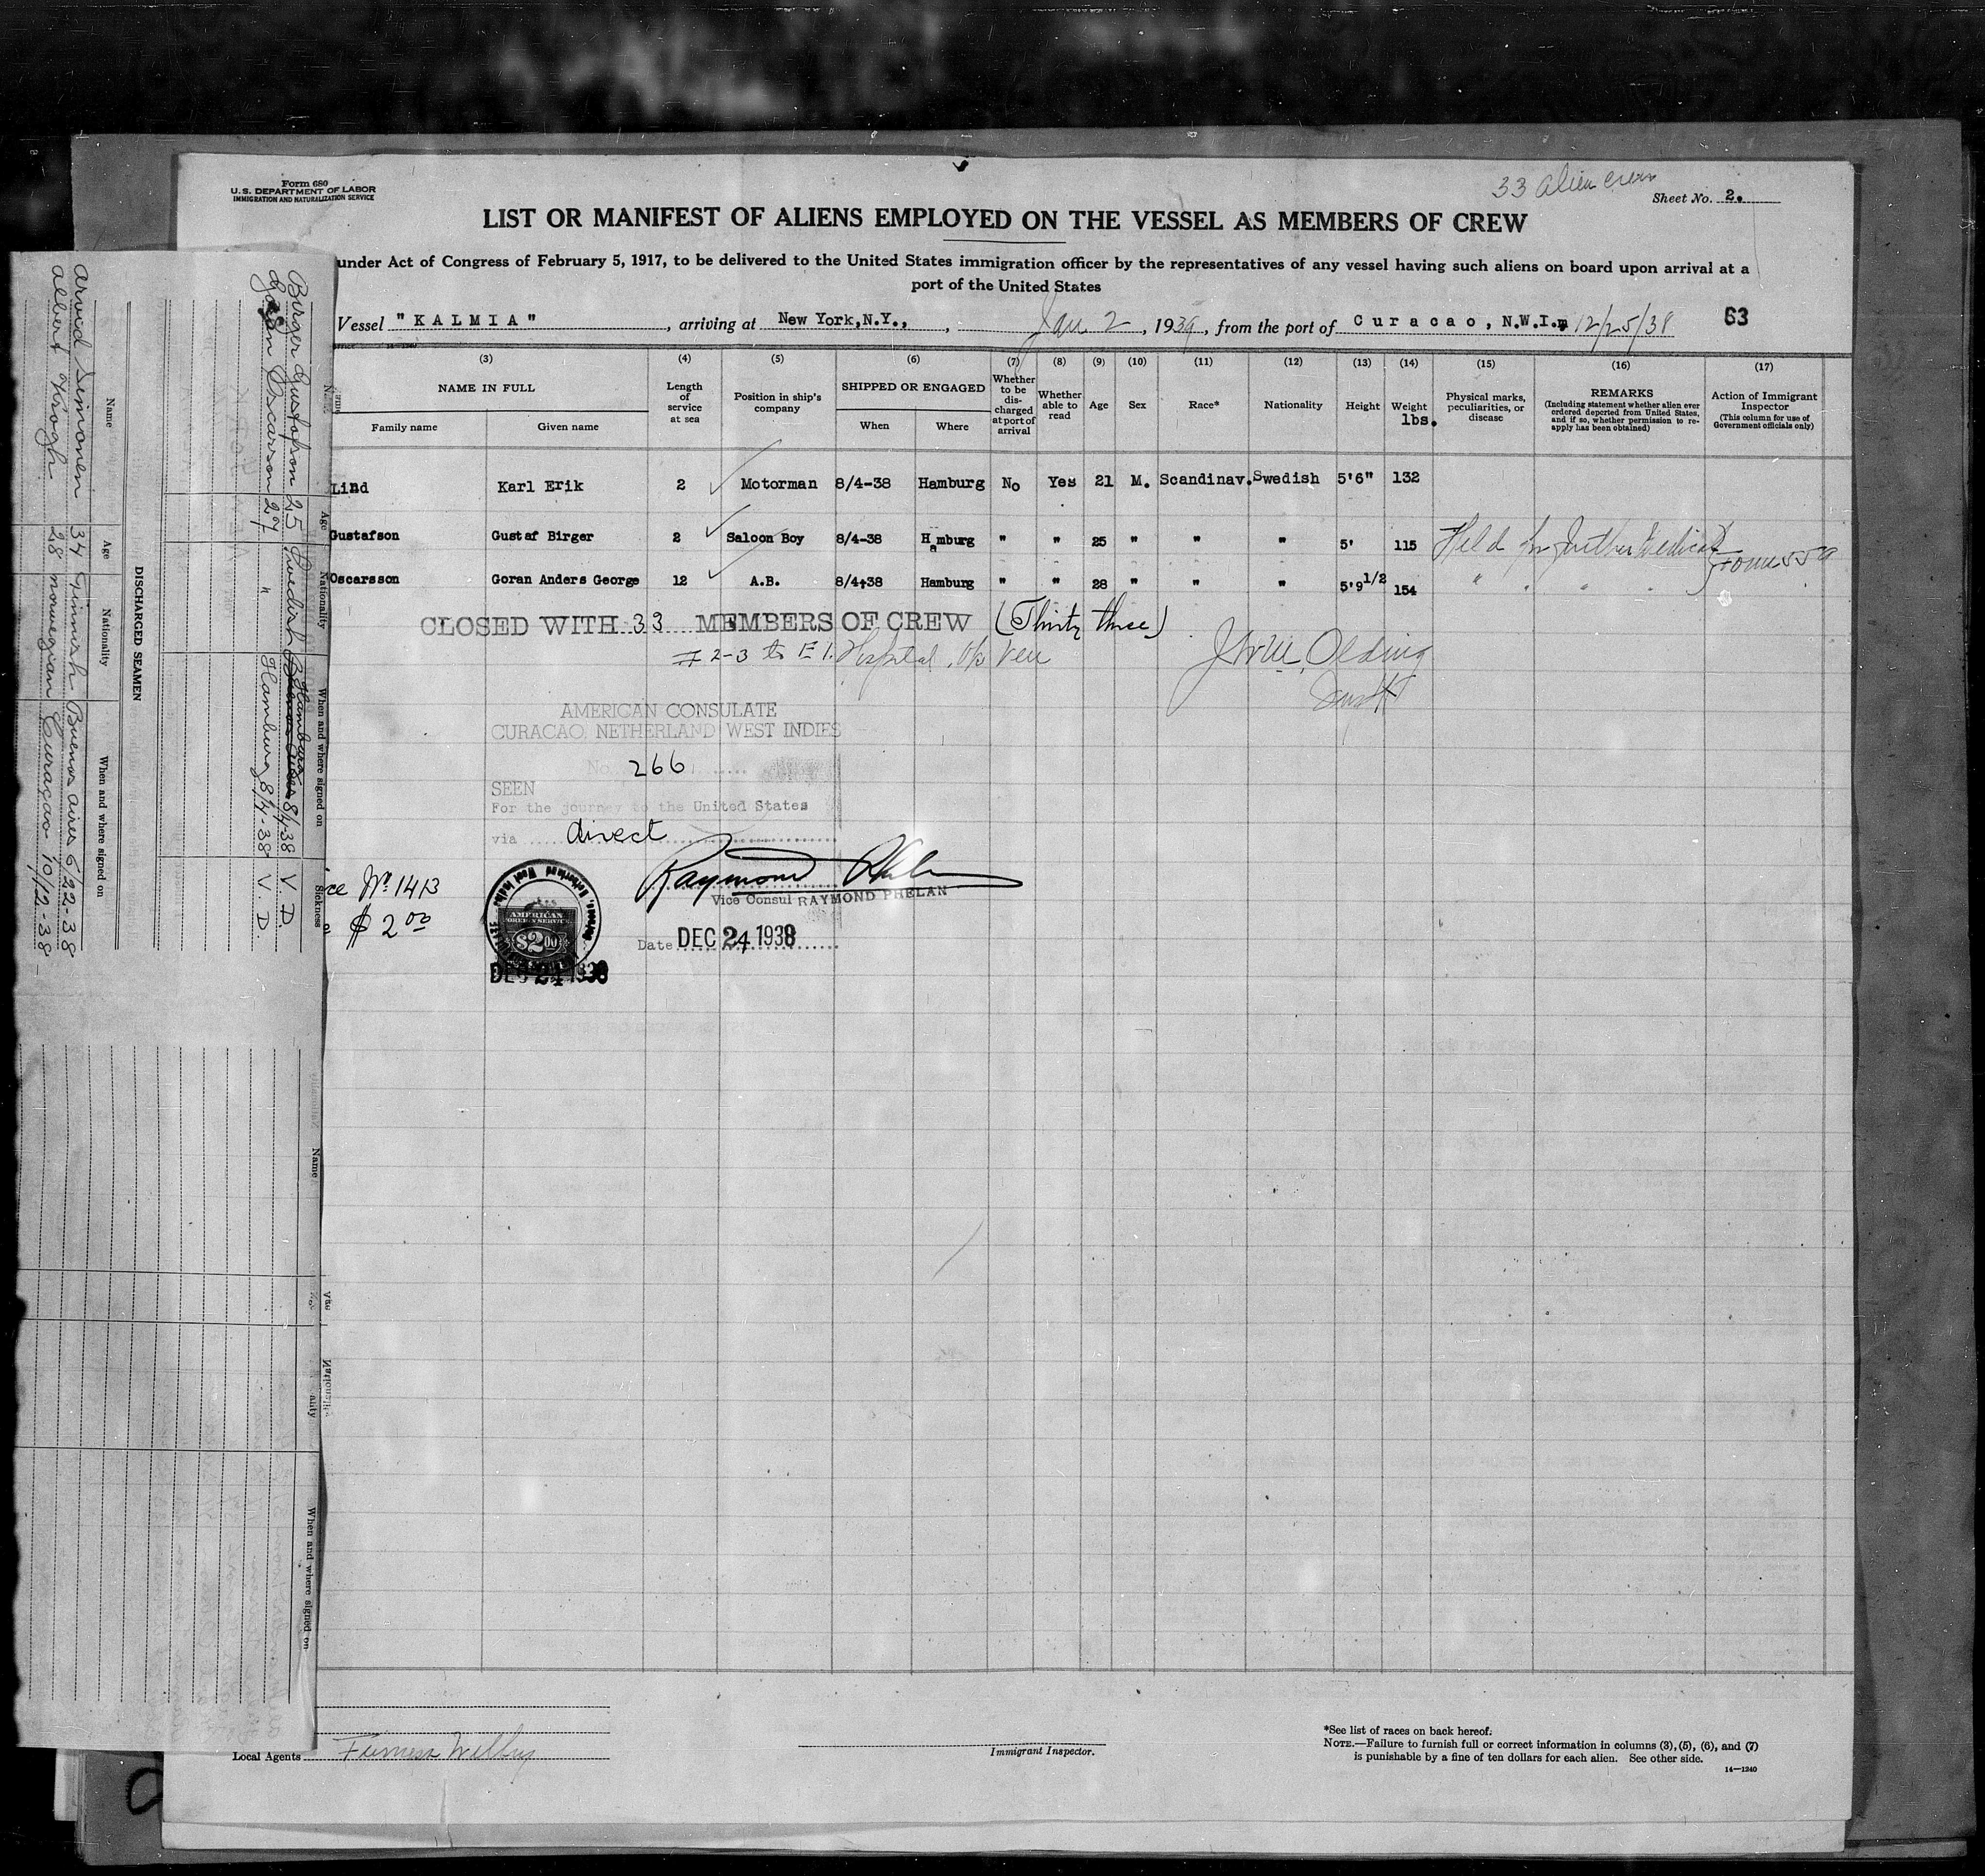 Form 680
U.S. DEPARTMENT OF LABOR
IMMIGRATION AND NATURALIZATION SERVICE
33 alien crew
Sheet No. 2.
LIST OR MANIFEST OF ALIENS EMPLOYED ON THE VESSEL AS MEMBERS OF CREW
under Act of Congress of February 5, 1917, to be delivered to the United States immigration officer by the representatives of any vessel having such aliens on board upon arrival at a
port of the United States
Vessel "KALMIA", arriving at New York, N.Y., Jan 2, 1939, from the port of Curacao, N.W.I. 12/25/38
63
(3) (4) (5) (6) (7) (8) (9) (10) (11) (12) (13) (14) (15) (16) (17)
NAME IN FULL
Family name
Given name
Length of service at sea
Position in ship's company
SHIPPED OR ENGAGED
When
Where
Whether to be discharged at port of arrival
Whether able to read
Age
Sex
Race*
Nationality
Height
Weight lbs.
Physical marks, peculiarities, or disease
REMARKS
(Including statement whether alien ever ordered deported from United States, and if so, whether permission to reapply has been obtained)
Action of Immigrant Inspector
(This column for use of Government officials only)
Lind Karl Erik 2 Motorman 8/4-38 Hamburg No Yes 21 M. Scandinav. Swedish 5'6" 132
Gustafson Gustaf Birger 2 Saloon Boy 8/4-38 Hamburg " " 25 " " " 5' 115 Held for further Medical Form 559
Oscarsson Goran Anders George 12 A.B. 8/4+38 Hamburg " " 28 " " " 5'9 1/2 154 " " " "
CLOSED WITH 33 MEMBERS OF CREW (Thirty three)
# 2-3 to E I. Hospital,
AMERICAN CONSULATE
CURACAO, NETHERLAND WEST INDIES
No. 266
SEEN
For the journey to the United States
via direct
Raymond Phelan
Vice Consul RAYMOND PHELAN
Date DEC 24 1938
No 1413
$ 2.00
AMERICAN
FOREIGN SERVICE
$2.00
DEC 24 1938
Local Agents Furness Withy
Immigrant Inspector.
*See list of races on back hereof.
NOTE.—Failure to furnish full or correct information in columns (3), (5), (6), and (7)
is punishable by a fine of ten dollars for each alien. See other side.
14—1240
DISCHARGED SEAMEN
Name
Age
Nationality
When and where signed on
Arvid Simonen 34 Finnish Buenos Aires 6/22-38
Albert 28 norwegian Curaçao 10/12-38
Age
Nationality
When and where signed on
Sickness
Birger Gustafson 25 Swedish Hamburg 8/4-38 V. D.
Göran Oscarsson 27 " Hamburg 8/4-38 V. D.
Name
When and where signed on